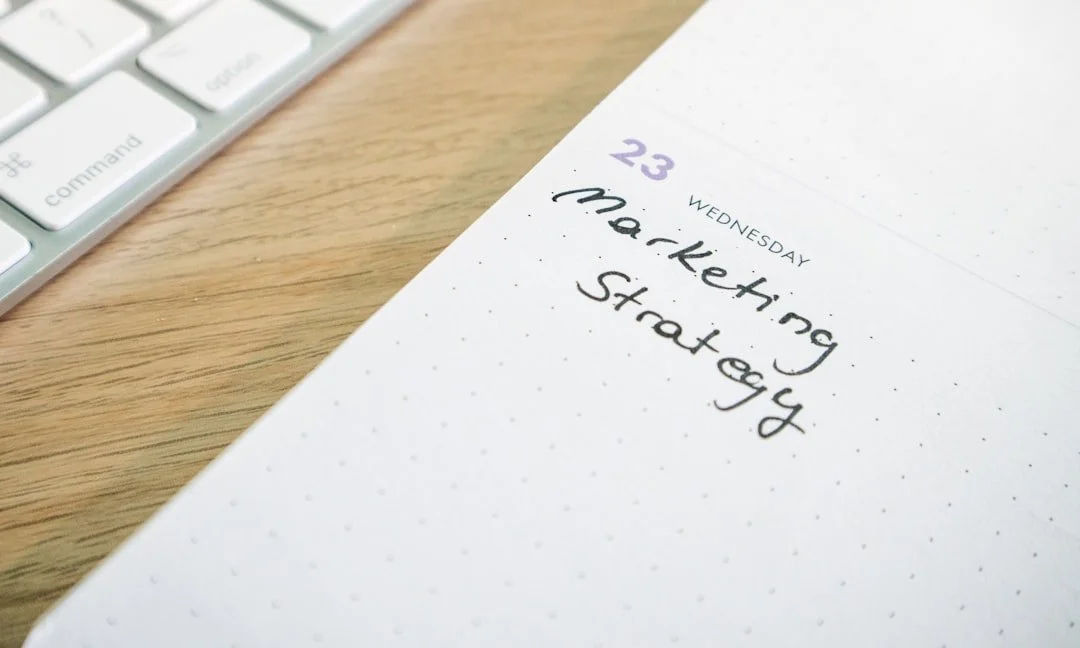 option
⌘ command
23 WEDNESDAY
Marketing
Strategy